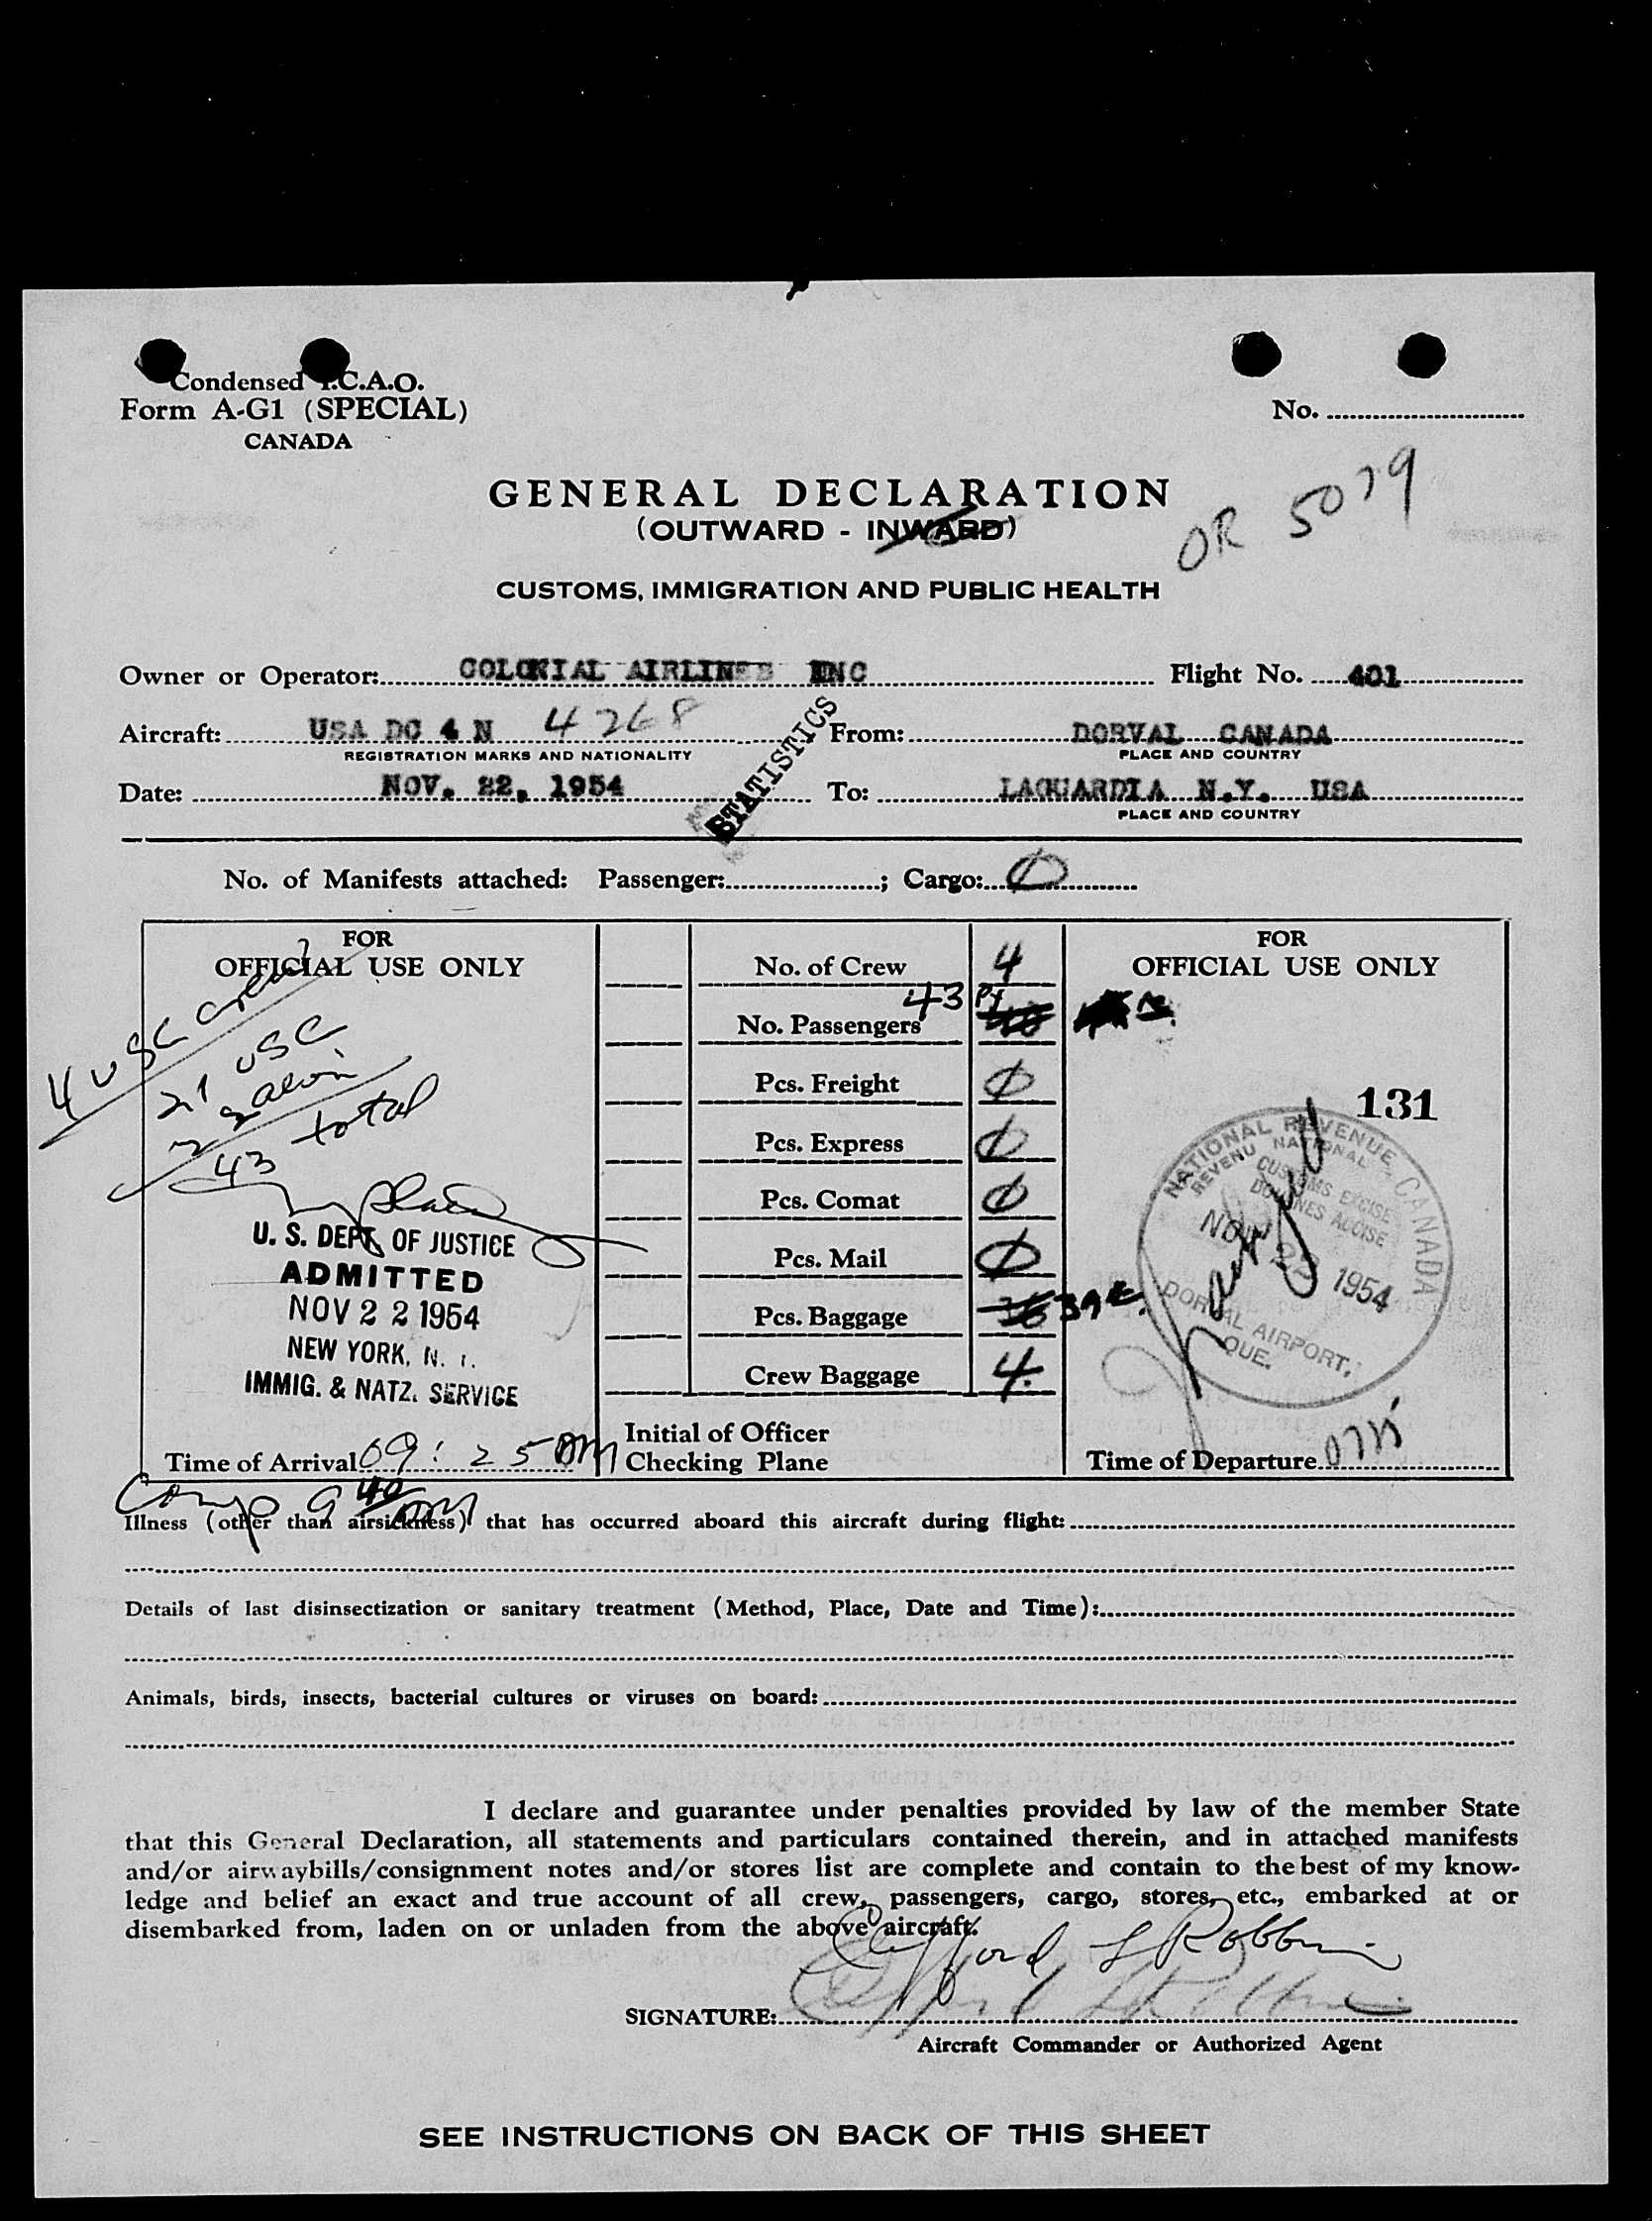 Condensed I.C.A.O.
Form A-G1 (SPECIAL)
CANADA
No.
OR 5079
GENERAL DECLARATION
(OUTWARD - INWARD)
CUSTOMS, IMMIGRATION AND PUBLIC HEALTH
Owner or Operator: COLONIAL AIRLINES INC Flight No. 401
Aircraft: USA DC 4 N 4268 From: DORVAL CANADA
REGISTRATION MARKS AND NATIONALITY PLACE AND COUNTRY
STATISTICS
Date: NOV. 22, 1954 To: LAGUARDIA N.Y. USA
PLACE AND COUNTRY
No. of Manifests attached: Passenger: ; Cargo: 0
FOR
OFFICIAL USE ONLY
4 USC crew
21 USC
22 alien
43 total
U. S. DEPT. OF JUSTICE
ADMITTED
NOV 22 1954
NEW YORK, N. Y.
IMMIG. & NATZ. SERVICE
Time of Arrival 09:25 AM
Comp 9 40 AM
No. of Crew 4
No. Passengers 43
Pcs. Freight 0
Pcs. Express 0
Pcs. Comat 0
Pcs. Mail 0
Pcs. Baggage 36 39
Crew Baggage 4
Initial of Officer
Checking Plane
FOR
OFFICIAL USE ONLY
131
NATIONAL REVENUE, CANADA
REVENU NATIONAL
CUSTOMS EXCISE
DOUANES ACCISE
NOV 22 1954
DORVAL AIRPORT,
QUE.
Time of Departure
Illness (other than airsickness) that has occurred aboard this aircraft during flight:
Details of last disinsectization or sanitary treatment (Method, Place, Date and Time):
Animals, birds, insects, bacterial cultures or viruses on board:
I declare and guarantee under penalties provided by law of the member State
that this General Declaration, all statements and particulars contained therein, and in attached manifests
and/or airwaybills/consignment notes and/or stores list are complete and contain to the best of my know-
ledge and belief an exact and true account of all crew, passengers, cargo, stores, etc., embarked at or
disembarked from, laden on or unladen from the above aircraft.
Clifford L Robbins
SIGNATURE:
Aircraft Commander or Authorized Agent
SEE INSTRUCTIONS ON BACK OF THIS SHEET